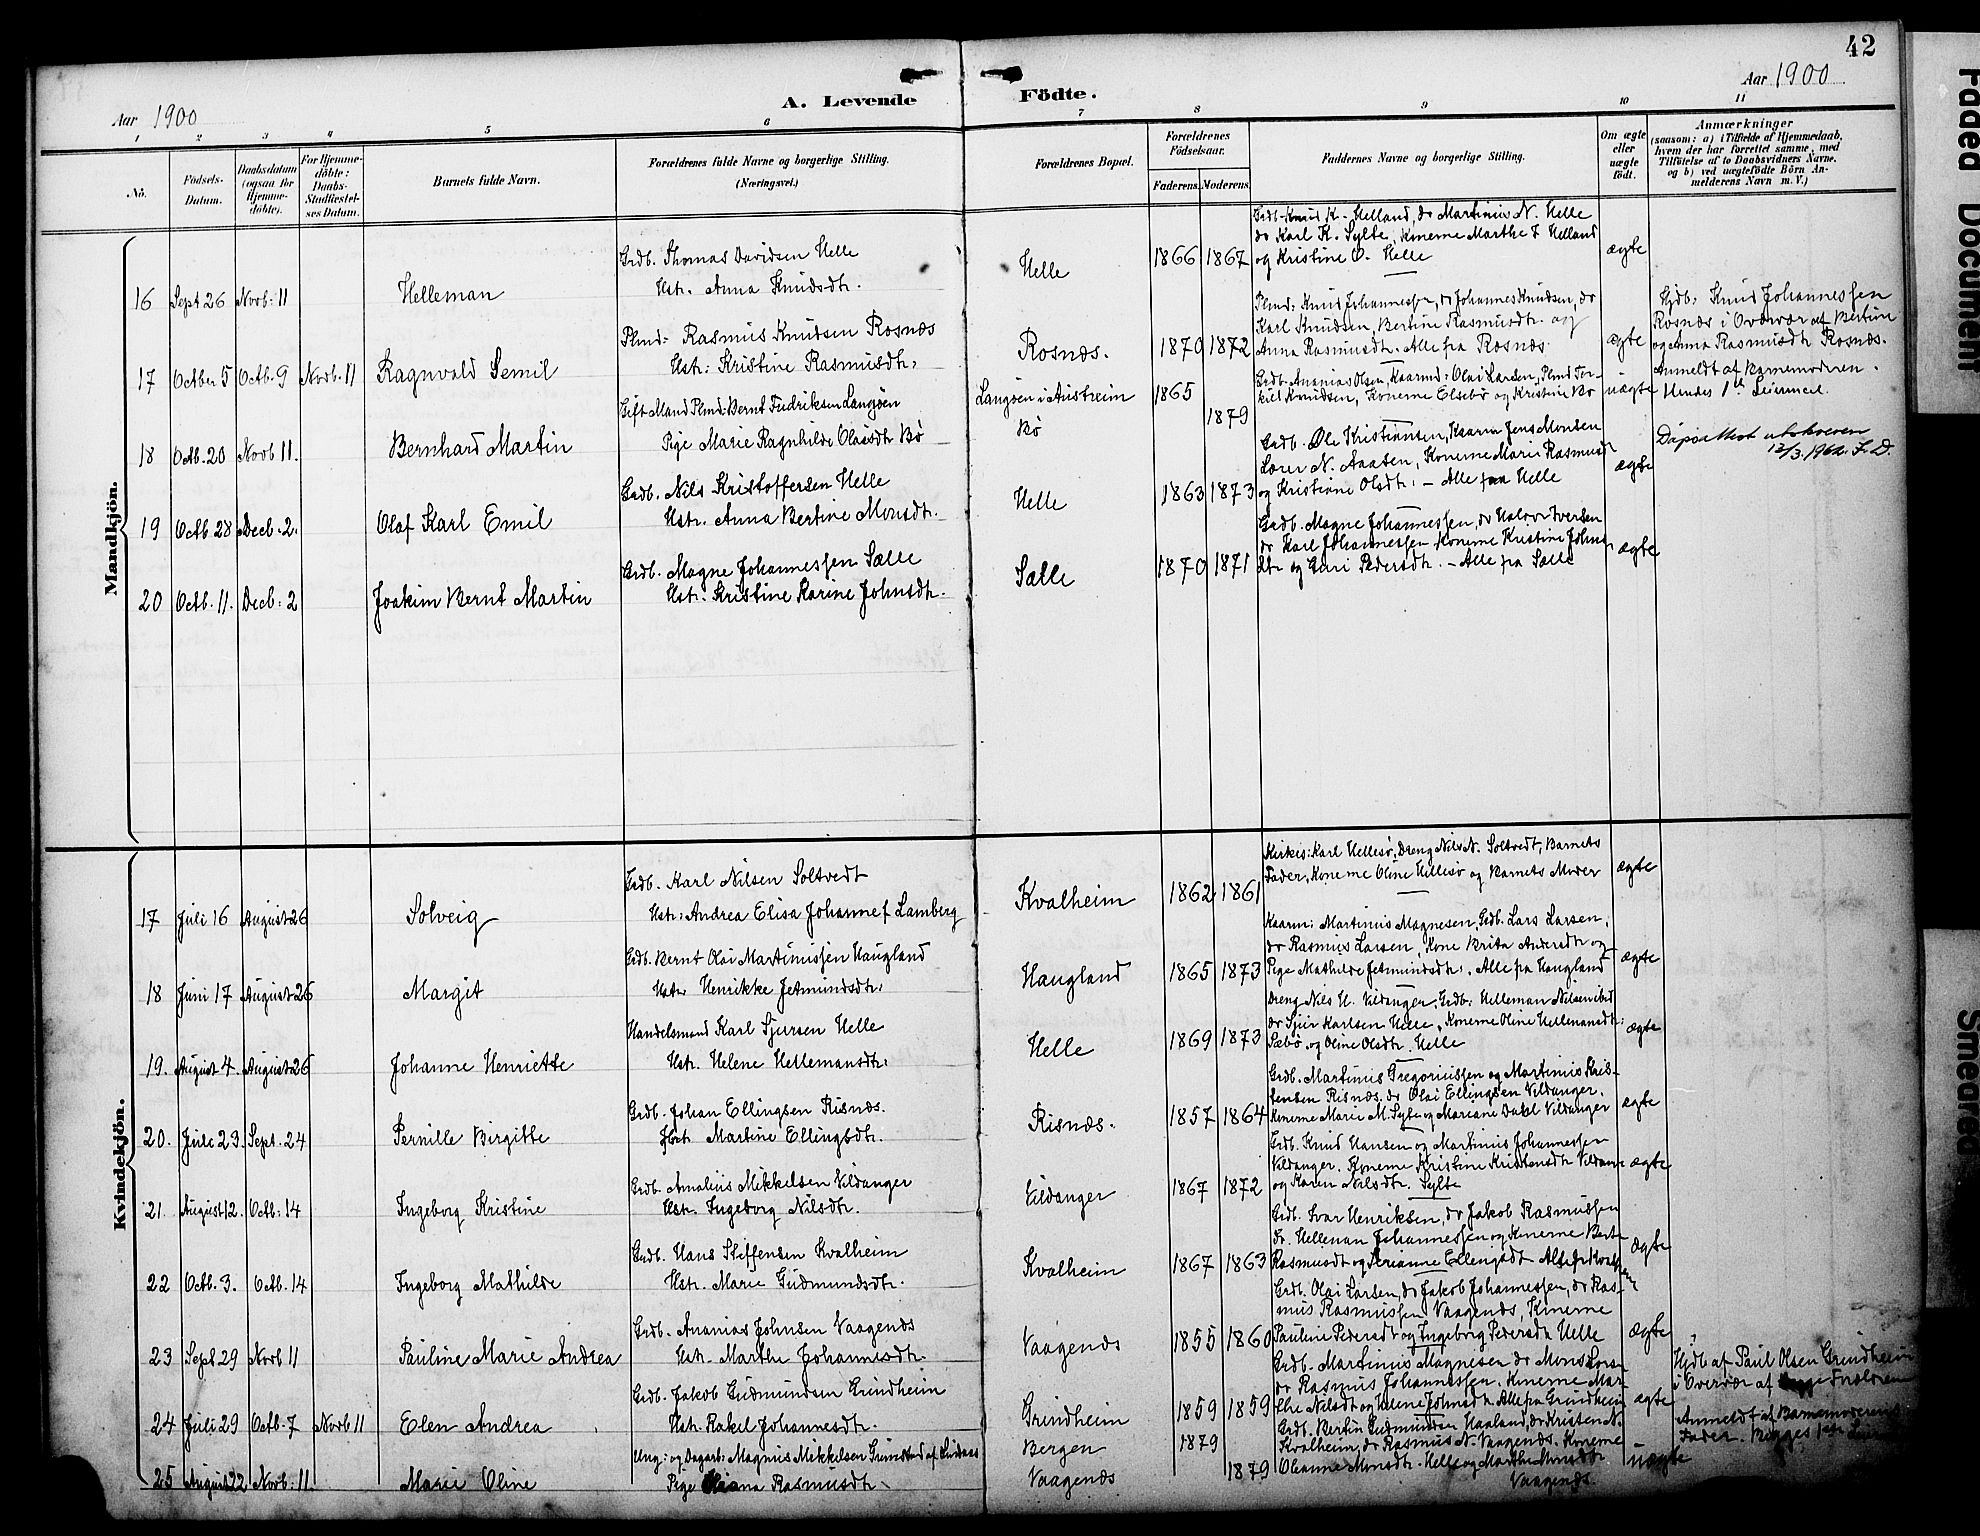 42
Aar 1900
A. Levende Födte.
Aar 1900
1 2 3 4 5 6 7 8 9 10 11
No.
Födsels-Datum.
Daabsdatum (ogsaa for Hjemmedöbte).
For Hjemmedöbte: Daabs-Stadfæstelses Datum.
Barnets fulde Navn.
Forældrenes fulde Navne og borgerlige Stilling.
(Næringsvei.)
Forældrenes Bopæl.
Forældrenes Födselsaar.
Faderens. Moderens.
Faddernes Navne og borgerlige Stilling.
Om ægte eller uægte födt.
Anmærkninger
(saasom: a) i Tilfælde af Hjemmedaab, hvem der har forrettet samme, med Tilföielse af to Daabsvidners Navne. og b) ved uægtefödte Börn Anmelderens Navn m. V.)
Mandkjön.
16 Sept 26 Novb: 11 Helleman
Grdb. Thomas Davidsen Helle
Hstr. Anna Knudsdtr.
Helle 1866 1867
Grdb. Knud K. Helland, do Martinius N. Helle
do Karl K. Sylte, Konerne Marthe I Helland
og Kristine O. Helle
ægte
17 Octber 5 Octb. 9 Novb. 11 Ragnvald Semil
Plmd: Rasmus Knudsen Rosnæs
Hstr: Kristine Rasmusdtr.
Rosnæs. 1870 1872
Plmd: Knud Johannessen, do Johannes Knudsen, do
Karl Knudsen, Bertine Rasmusdtr. og
Anna Rasmusdtr. Alle fra Rosnæs.
ægte
Hjdb: Knud Johannessen
Rosnæs i Overvær af Bertine
og Anna Rasmusdtr Rosnæs.
18 Octb. 20 Novb 11. Bernhard Martin
Gift Mand Plmd: Bernt Fredriksen Langöen
Pige Marie Ragnhilde Olaisdtr Bö
Langöen i Austrheim 1865
Bö 1879
Grdb. Ananias Olsen, Kaarmd: Olai Larsen, Plmd Tor-
kild Knudsen, Konerne Elsebö og Kristine Bö
uægte
Anmeldt af Barnemoderen.
Hendes 1ste Leiermaal.
Dåpsattest utskreven
12/3. 1962. F. D.
19 Octb 28 Decb. 2. Olaf Karl Emil
Grdb. Nils Kristoffersen Helle
Hstr. Anna Bertine Monsdtr.
Helle 1863 1873
Grdb. Ole Kristiansen, Kaarm Jens Monsen
N. Aaasen, Konerne Marie Rasmusd
og Kristiane Olsdtr. – Alle fra Helle
ægte
20 Octb. 11. Decb: 2 Joakim Bernt Martin
Grdb. Magne Johannessen Sælle
Hstr. Kristine Karine Johnsdtr.
Sælle 1870 1871
Grdb. Magne Johannessen, do Halvor Iversen
do Karl Johannessen Konerne Kristine Johns-
dtr og Guri Pedersdtr. – Alle fra Sælle
ægte
Kvindekjön.
17 Juli 16 August 26 Solveig
Grdb. Karl Nilsen Soltvedt
Hstr: Andrea Elisa Johannes Lamberg
Kvalheim 1862 1861
Kirkes: Karl Hellesö, Dreng Nils N. Soltvedt, Barnets
Fader, Konerne Oline Hellesö og Barnets Moder
ægte
18 Juni 17 August 26 Margit
Grdb. Bernt Olai Martinussen Haugland
Hstr. Henrikke Jetmundsdtr.
Haugland 1865 1873
Kaarm: Martinus Magnesen, Grdb. Lars Larsen,
do Rasmus Larsen, Kone Brita Andersdtr og
Pige Mathilde Jetmundsdtr. Alle fra Haugland
ægte
19. August 4. August 26 Johanne Henriette
Handelsmand Karl Sjursen Helle
Hstr. Helene Hellemansdtr.
Helle 1869 1873
Dreng Nils H. Vildanger, Grdb: Helleman Nilsen ibid
do Sjur Karlsen Helle, Konerne Oline Hellemansdtr.
Sæbö og Oline Olsdtr. Helle
ægte
20. Juli 23. Sept. 24 Pernille Birgitte
Grdb. Johan Ellingsen Risnæs.
Hstr Martine Ellingsdtr.
Risnæs. 1857 1864
Grdb. Martinus Gregoriussen og Martinus Kris-
tensen Risnæs. do Olai Ellingsen Vildanger.
Konerne Marie M. Sylte og Mariane Dahl Vildanger
ægte
21. August 12. Octb. 14 Ingeborg Kristine
Grdb. Amalius Mikkelsen Vildanger
Hstr. Ingeborg Nilsdtr.
Vildanger 1867 1872
Grdb. Knud Hansen og Martinus Johannessen
Vildanger. Konerne Kristine Kristensdtr Vildan
og Karen Nilsdtr. Sylte
ægte
22 Octb. 3. Octb. 14 Ingeborg Mathilde
Grdb. Hans Steffensen Kvalheim
Hstr. Marie Gudmundsdtr.
Kvalheim 1867 1863
Grdb. Ivar Henriksen, do Jakob Rasmussen
do. Helleman Johannessen og Konerne Berte
Rasmusdt og Serianne Ellingsdt Alle fr Kvalheim
ægte
23 Sept 29 Novb 11 Pauline Marie Andrea
Grdb. Ananias Johnsen Vaagenæs
Hstr. Marthe Johannesdtr.
Vaagenæs 1855 1860
Grdb. Olai Larsen, do Jakob Johannessen, do Ras-
mus Rasmussen Vaagenæs, Konerne
Pauline Pedersdt og Ingeborg Pedersdt Helle
ægte
24 Juli 29 Octb. 7 Novb 11 Elen Andrea
Grdb. Jakob Gudmundsen Grindheim
Hstr. Rakel Johannesdtr.
Grindheim 1859 1859
Grdb. Martinus Magnesen do Mons Lars
do Rasmus Johannessen. Konerne Mar-
the Nilsdt og Helene Johnsdt. Alle fra Grindheim
ægte
Hjdb af Paul Olsen Grindheim
i Overvær af Forældrene
25 August 22 Novb: 11. Marie Oline
Ung: og Dagarb: Magnus Mikkelsen Grunstad af Lindaas
Pige Rasmusdtr.
Bergen 1879
Vaagenæs 1879
Grdb. Bertin Gudmundsen Haaland, do Kristen N.
Kvalheim, do Rasmus N. Vaagenæs. Konerne
Oleanne Monsdtr. Helle og Marthe Monsdtr
Vaagenæs.
uægte
Anmeldt af Barnemoderens
Fader. Begges 1ste
Faded Document
Smeared